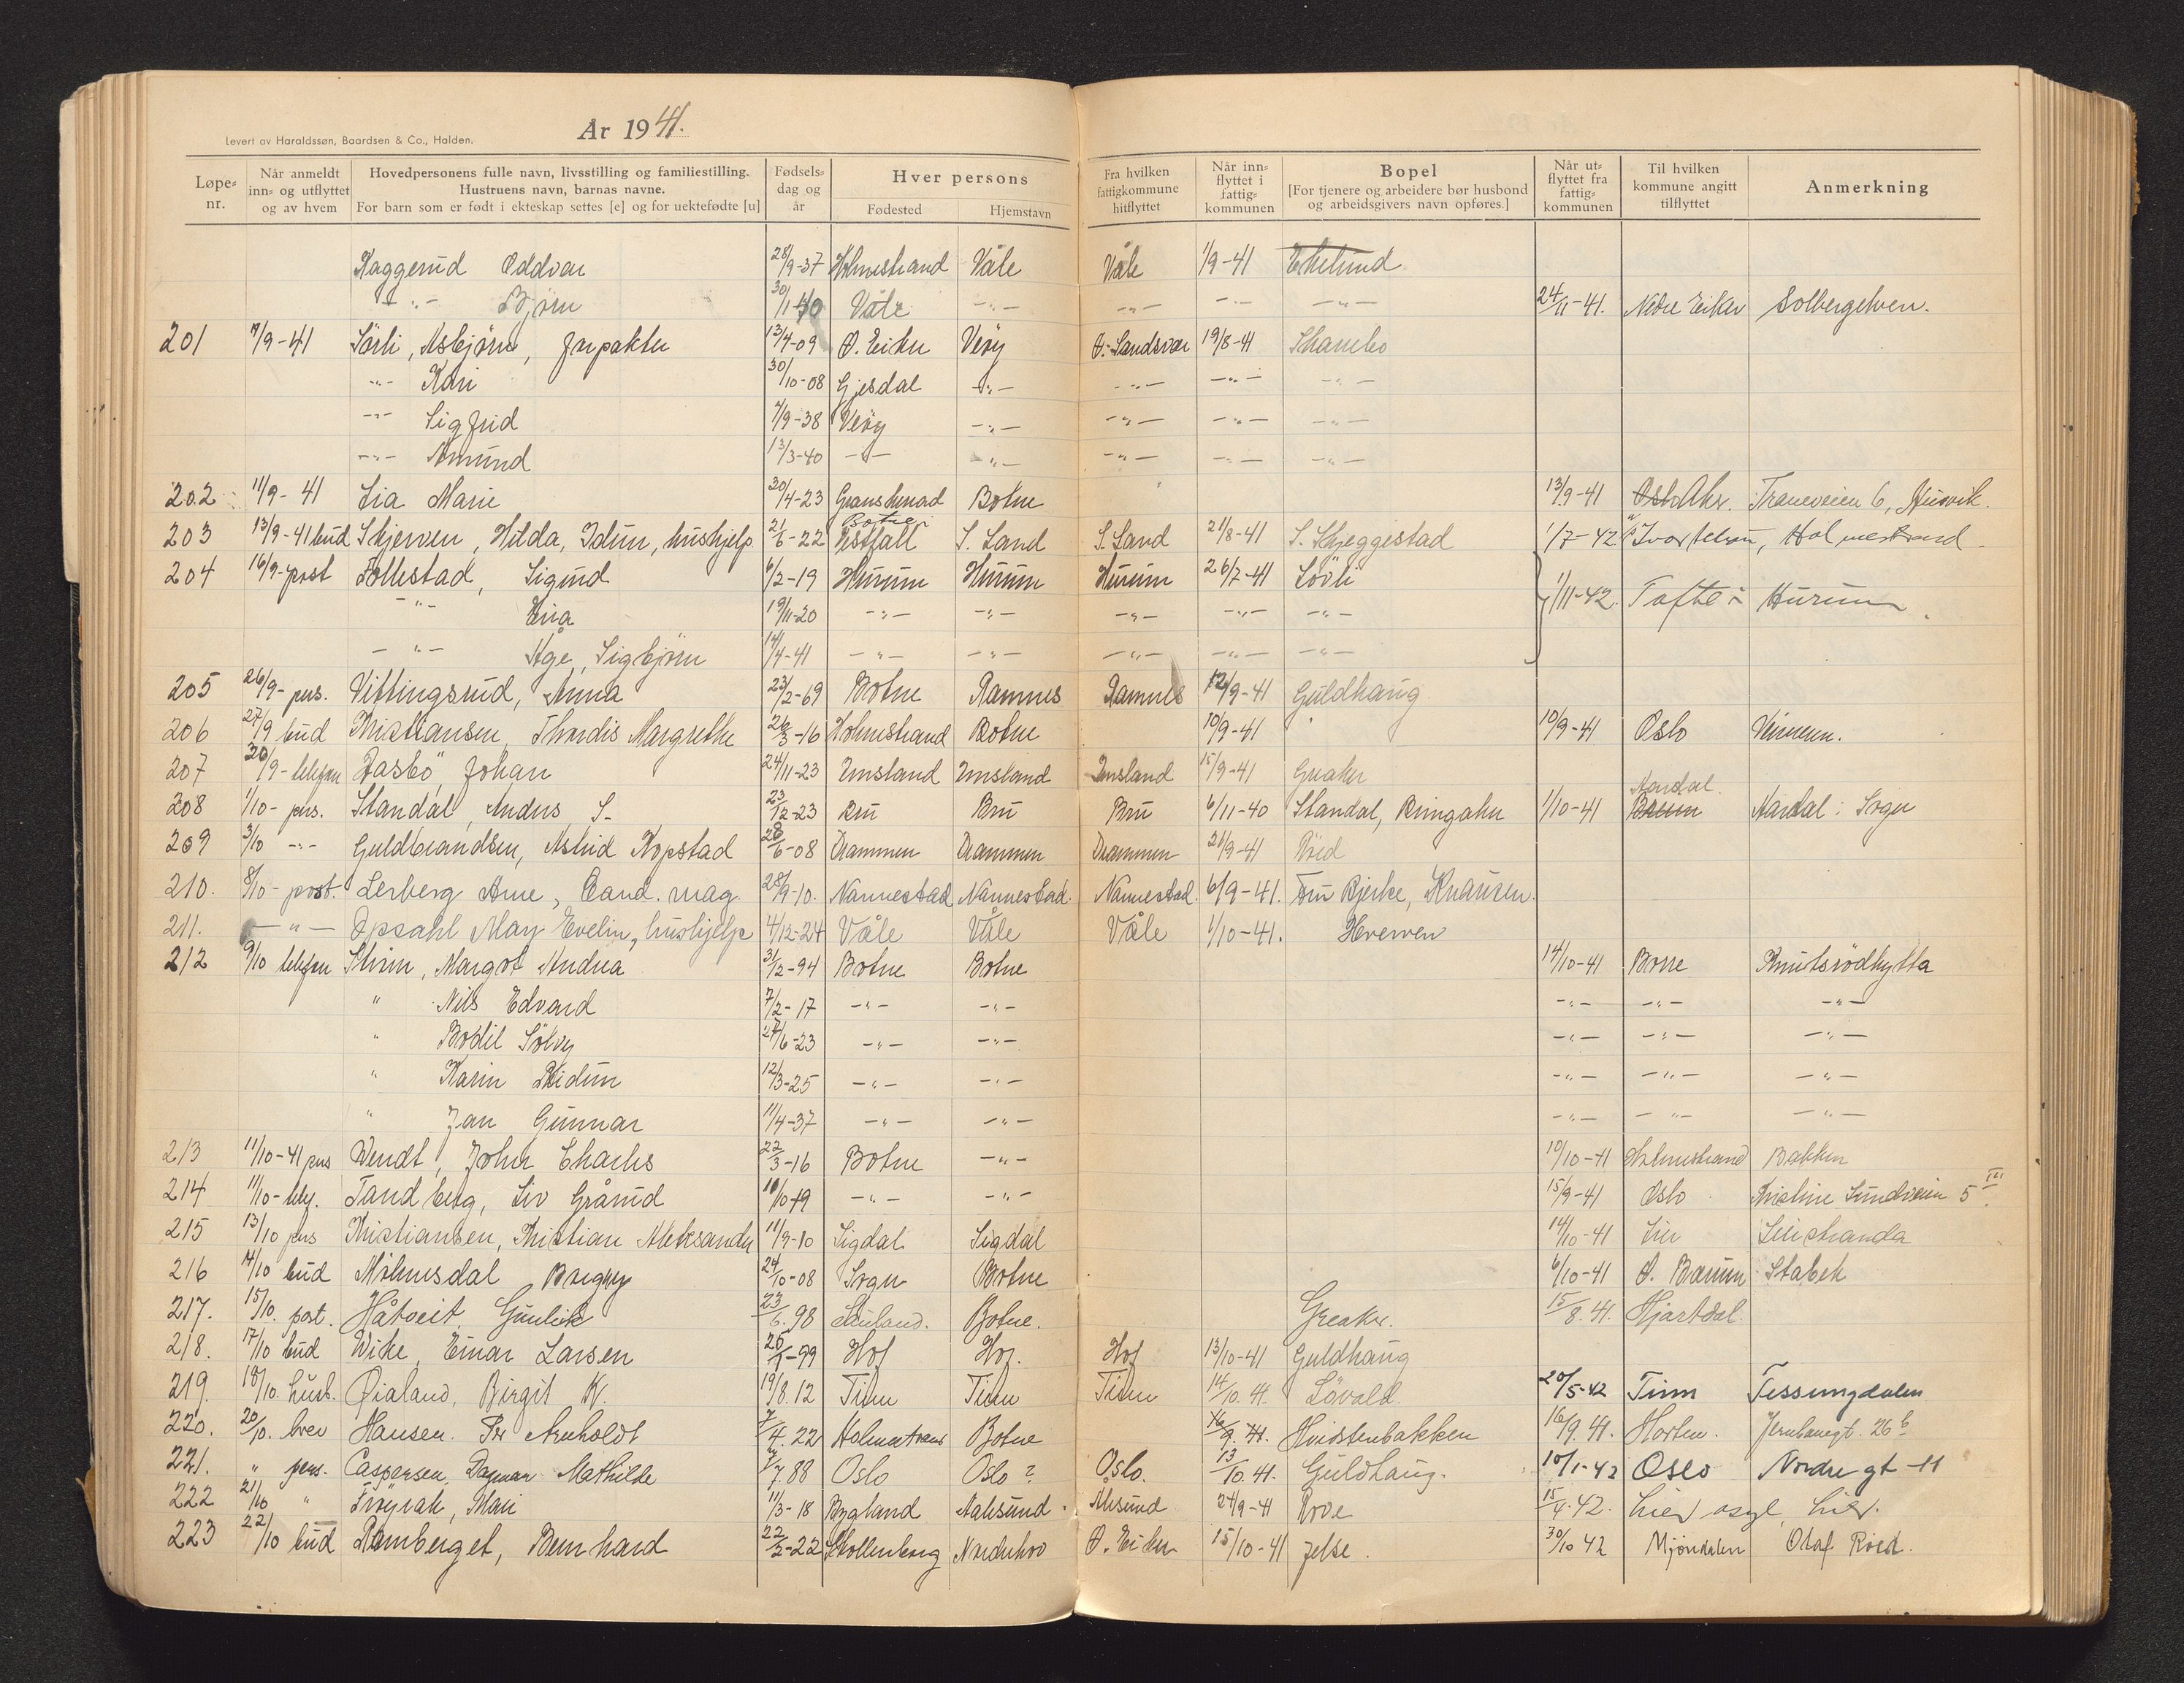 År 1941.
Levert av Haraldssøn, Baardsen & Co., Halden.
Løpe-nr. Når anmeldt inn- og utflyttet og av hvem Hovedpersonens fulle navn, livsstilling og familiestilling. Hustruens navn, barnas navne. For barn som er født i ekteskap settes [e] og for uektefødte [u] Fødsels-dag og år Hver persons Fødested Hjemstavn Fra hvilken fattigkommune hitflyttet Når inn-flyttet i fattig-kommunen Bopel [For tjenere og arbeidere bør husbond og arbeidsgivers navn opføres.] Når ut-flyttet fra fattig-kommunen Til hvilken kommune angitt tilflyttet Anmerkning
Kaggerud Oddvar 28/9-37 Holmestrand Våle Våle 1/9-41 Ekelund
-"- Bjørn 30/1 40 Våle -"- -"- -"- -"- 24/11-41. Nedre Eiker Solbergelven.
201 7/9-41 Sörli, Asbjørn, forpakter 13/4-09 Ø. Eiker Veöy Ø. Sandsvær 19/8-41 Skambo
-"- Kari 30/10-08 Gjesdal -"- -"- -"- -"-
-"- Sigfrid 4/9-38 Veöy -"- -"- -"- -"-
-"- Amund 13/3-40 -"- -"- -"- -"- -"-
202 11/9-41 Lia Marie 20/4-23 Botne 13/9-41 Oslo Aker. Traneveien 6, Husvik.
203 13/9-41 bud Skjerven, Hilda, Idun, hushjelp. 21/6-22 Vestfall Botne S. Land S. Land 21/8-41 S. Skjeggestad 1/7-42 Holmestrand
204 16/9-post Follestad, Sigurd 6/2-19 Hurum Hurum Hurum 26/7-41 Lövli 1/11-42 Tofte i Hurum
-"- Eva 19/11-20 -"- -"- -"- -"- -"-
-"- Åge, Sigbjörn 14/4-41 -"- -"- -"- -"- -"-
205 26/9-pers. Vittingsrud, Anna 23/2-69 Botne Ramnes Ramnes 12/9-41 Guldhaug
206 27/9 bud Kristiansen Thordis Margrethe 26/3-16 Holmestrand Botne 10/9-41 " 10/9-41 Oslo
207 30/9-telefon Aasbö, Johan 24/11-23 Imsland Imsland Imsland 15/9-41 Greaker
208 1/10-pers. Standal, Anders S- 23/12-23 Bru Bru Bru 6/11-40 Standal, Ringaker 1/10-41 Aardal Aardal i Sogn
209 3/10 -"- Guldbrandsen, Astrid Kopstad 28/6-08 Drammen Drammen Drammen 21/9-41 Röed
210. 8/10-post. Lerberg Arne, Cand. mag. 28/9-10. Nannestad Nannestad. Nannestad. 6/9-41. Fru Bjerke, Knausen.
211. -"- Opsahl May Evelin, hushjelp 4/12-24 Våle Våle Våle 1/10-41. Herven
212 9/10 telefon Strim, Margot Andrea 31/2-94 Botne Botne 14/10-41 Borre Knutsrödhytta
" Nils Edvard 7/2-17 -"- -"- -"- -"- -"-
" Bodil Sölvy 27/6-23 -"- -"- -"- -"- -"-
" Karin Reidun 12/3-25 -"- -"- -"- -"- -"-
" Jan Gunnar 11/4-37 -"- -"- -"- -"- -"-
213 11/10-41 pers Wendt, John Charles 22/3-16 Botne -"- 10/10-41 Holmestrand Bakken
214 11/10-tlf. Tandberg, Liv Grårud 10/10 19 -"- -"- 15/9-41 Oslo Kristine Sundveien 5
215 13/10 pers Kristiansen, Kristian Aleksander 11/9-10 Sigdal Sigdal 14/10-41 Lier Lierstranda
216 14/10 bud Molmesdal Borghy 24/10-08 Sogn Botne 6/10-41 Ø. Bærum Stabek
217. 15/10. post. Håtveit, Gunleik 23/6. 98 Sauland. Botne. Greaker. 15/8. 41. Hjartdal.
218. 17/10 bud Wike, Einar Larsen 25/9-99 Hof Hof. Hof 13/10-41 Guldhaug
219. 18/10. husb. Øialand, Birgit K. 19/8. 12 Tinn Tinn Tinn 14/10. 41. Lövald. 20/5-42 Tinn Tessungdalen
220. 20/10. brev Hansen. Per Arnholdt 7/4. 22 Holmestrand Botne 16/9. 41. Hvidstenbakken 16/9. 41. Horten. Jernbanegt. 26 b
221. " pers. Caspersen, Dagmar Mathilde 4/7. 88 Oslo Oslo? Oslo. 13/10. 41. Guldhaug. 10/1-42 Oslo Nordre gt 11
222 21/10 " Fröyrak, Mari 11/3-18 Bygland Aalesund. Alesund 24/9-41 Rove 15/4. 42. Lier asyl, Lier.
223 22/10 bud Ramberget, Bernhard 22/2-22 Skollenborg Norderhov Ø. Eiker 15/10-41 Jelse. 30/10 42 Mjøndalen Olaf Röed.